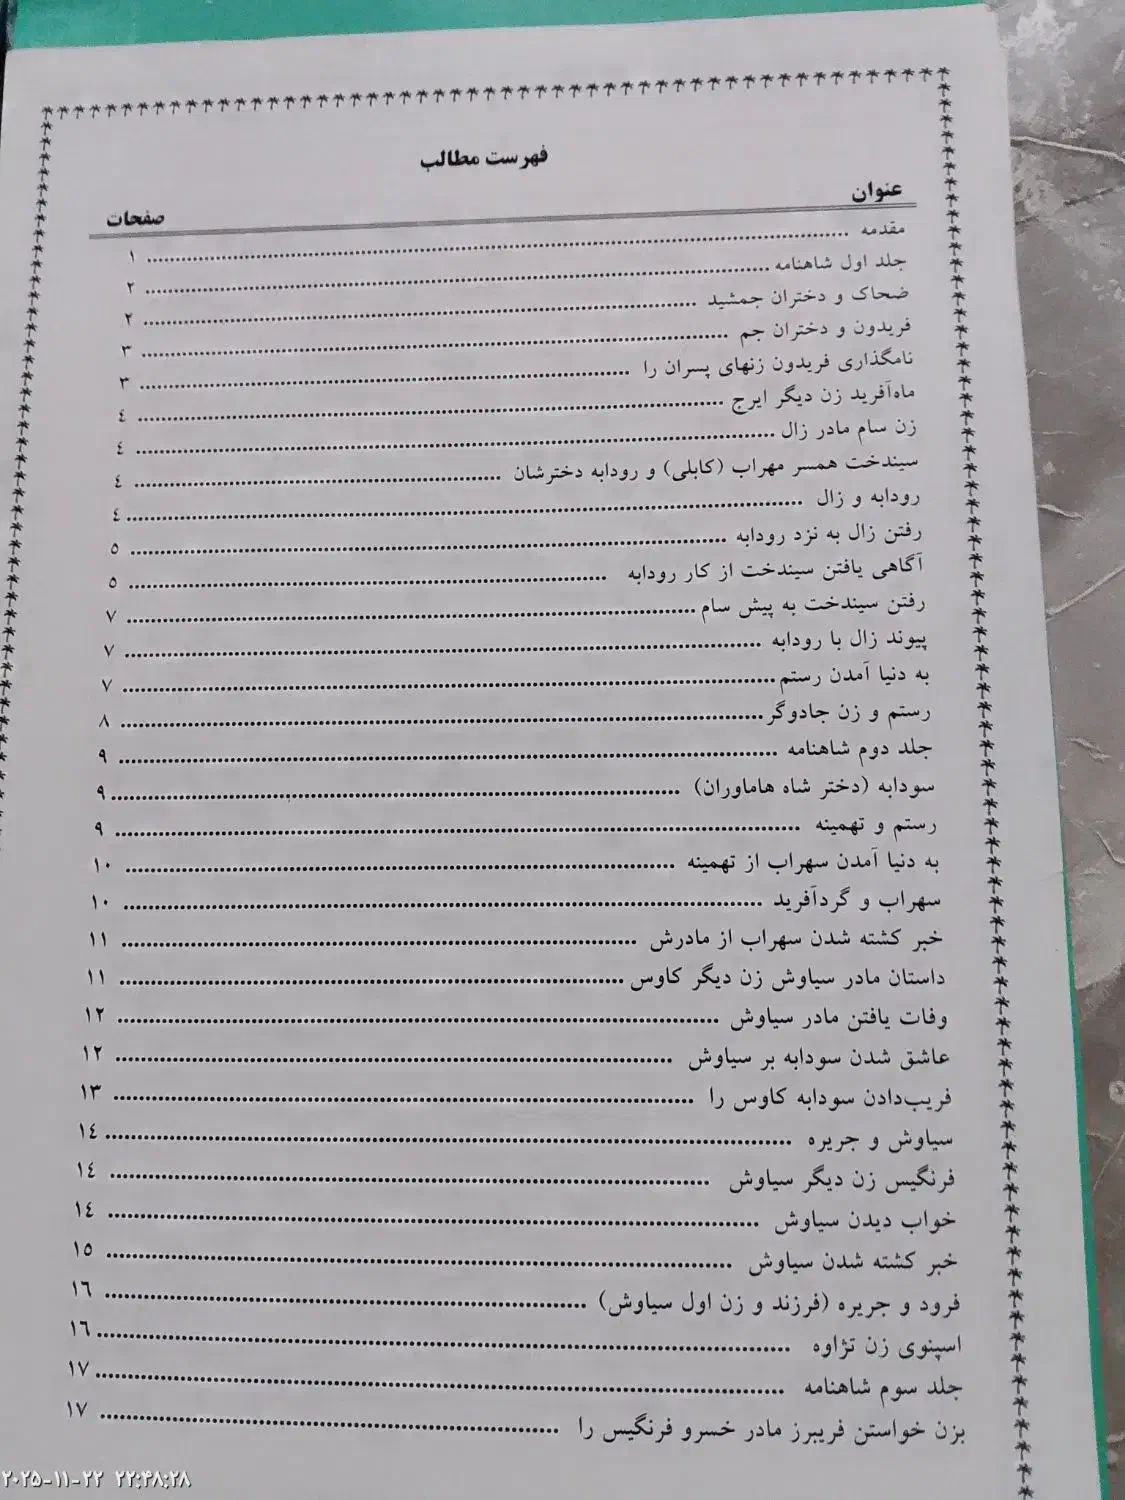 فهرست مطالب
عنوان صفحات
مقدمه ........ ۱
جلد اول شاهنامه ........ ۲
ضحاک و دختران جمشید ........ ۲
فریدون و دختران جم ........ ۳
نامگذاری فریدون زنهای پسران را ........ ۳
ماه‌آفرید زن دیگر ایرج ........ ٤
زن سام مادر زال ........ ٤
سیندخت همسر مهراب (کابلی) و رودابه دخترشان ........ ٤
رودابه و زال ........ ٤
رفتن زال به نزد رودابه ........ ٥
آگاهی یافتن سیندخت از کار رودابه ........ ٥
رفتن سیندخت به پیش سام ........ ۷
پیوند زال با رودابه ........ ۷
به دنیا آمدن رستم ........ ۷
رستم و زن جادوگر ........ ۸
جلد دوم شاهنامه ........ ۹
سودابه (دختر شاه هاماوران) ........ ۹
رستم و تهمینه ........ ۹
به دنیا آمدن سهراب از تهمینه ........ ۱۰
سهراب و گردآفرید ........ ۱۰
خبر کشته شدن سهراب از مادرش ........ ۱۱
داستان مادر سیاوش زن دیگر کاوس ........ ۱۱
وفات یافتن مادر سیاوش ........ ۱۲
عاشق شدن سودابه بر سیاوش ........ ۱۲
فریب‌دادن سودابه کاوس را ........ ۱۳
سیاوش و جریره ........ ۱٤
فرنگیس زن دیگر سیاوش ........ ۱٤
خواب دیدن سیاوش ........ ۱٤
خبر کشته شدن سیاوش ........ ۱٥
فرود و جریره (فرزند و زن اول سیاوش) ........ ۱٦
اسپنوی زن تژاوه ........ ۱٦
جلد سوم شاهنامه ........ ۱۷
بزن خواستن فریبرز مادر خسرو فرنگیس را ........ ۱۷
۲۰۲۵-۱۱-۲۲ ۲۲:۴۸:۲۸